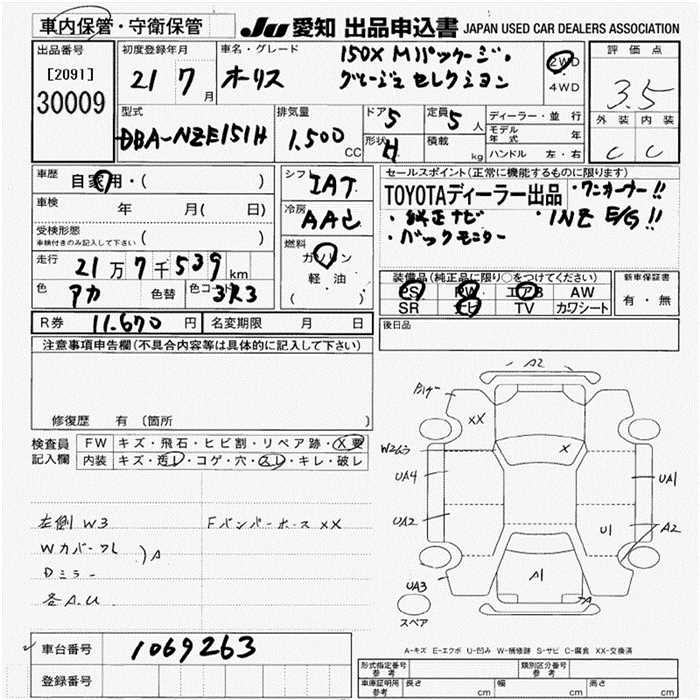 車内保管・守衛保管 JU 愛知 出品申込書 JAPAN USED CAR DEALERS ASSOCIATION
出品番号 初度登録年月 車名・グレード 評価点
[2091] 30009 21 7月 オーリス 150X Mパッケージ. 2WD 4WD 3.5
外装 内装
C C
型式 排気量 ドア 5 定員 5人 ディーラー・並行
DBA-NZE151H 1.500 CC 形状 H 積載 kg モデル年式 年
ハンドル 左・右
車歴 自家用・( ) シフト IAT セールスポイント(正常に機能するものに限ります)
車検 年 月( 日) 冷房 AAC TOYOTAディーラー出品 ・ワンオーナー!!
受検形態 ( ) ・純正ナビ ・1NZ E/G!!
車検付きのみ記入して下さい 燃料 ガソリン ・バックモニター
走行 21万7千539km 軽油
色 アカ 色替 色コード 3R3 ( )
装備品(純正品に限り○をつけてください) 新車保証書
PS PW エアB AW 有・無
SR ナビ TV カワシート
R券 11.670円 名変期限 月 日 後日品
注意事項申告欄(不具合内容等は具体的に記入して下さい)
修復歴 有 〔箇所 〕
検査員記入欄 FW キズ・飛石・ヒビ割・リペア跡・X要
内装 キズ・汚レ・コゲ・穴・スレ・キレ・破レ
左側 W3 Fバンパーホース XX
Wカバーワレ
Dミラー )A
各A.U
A2
XX
X
W2ヶ3
UA4 UA1
UA2 U1 A2
A1
UA3 A
スペア
A-キズ E-エクボ U-凹み W-補修跡 S-サビ C-腐食 XX-交換済
車台番号 1069263
登録番号
形式指定番号 参考 類別区分番号 参考
車庫証明用 参考 長さ cm 幅 cm 高さ cm